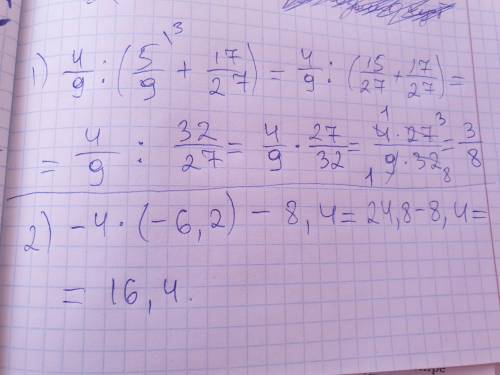 1) 4/9 : (5/9 \3 + 17/27) = 4/9 : (15/27 + 17/27) =
= 4/9 : 32/27 = 4/9 · 27/32 = 4 1 · 27 3 / 1 9 · 32 8 = 3/8
2) -4 · (-6,2) - 8,4 = 24,8-8,4 =
= 16,4.